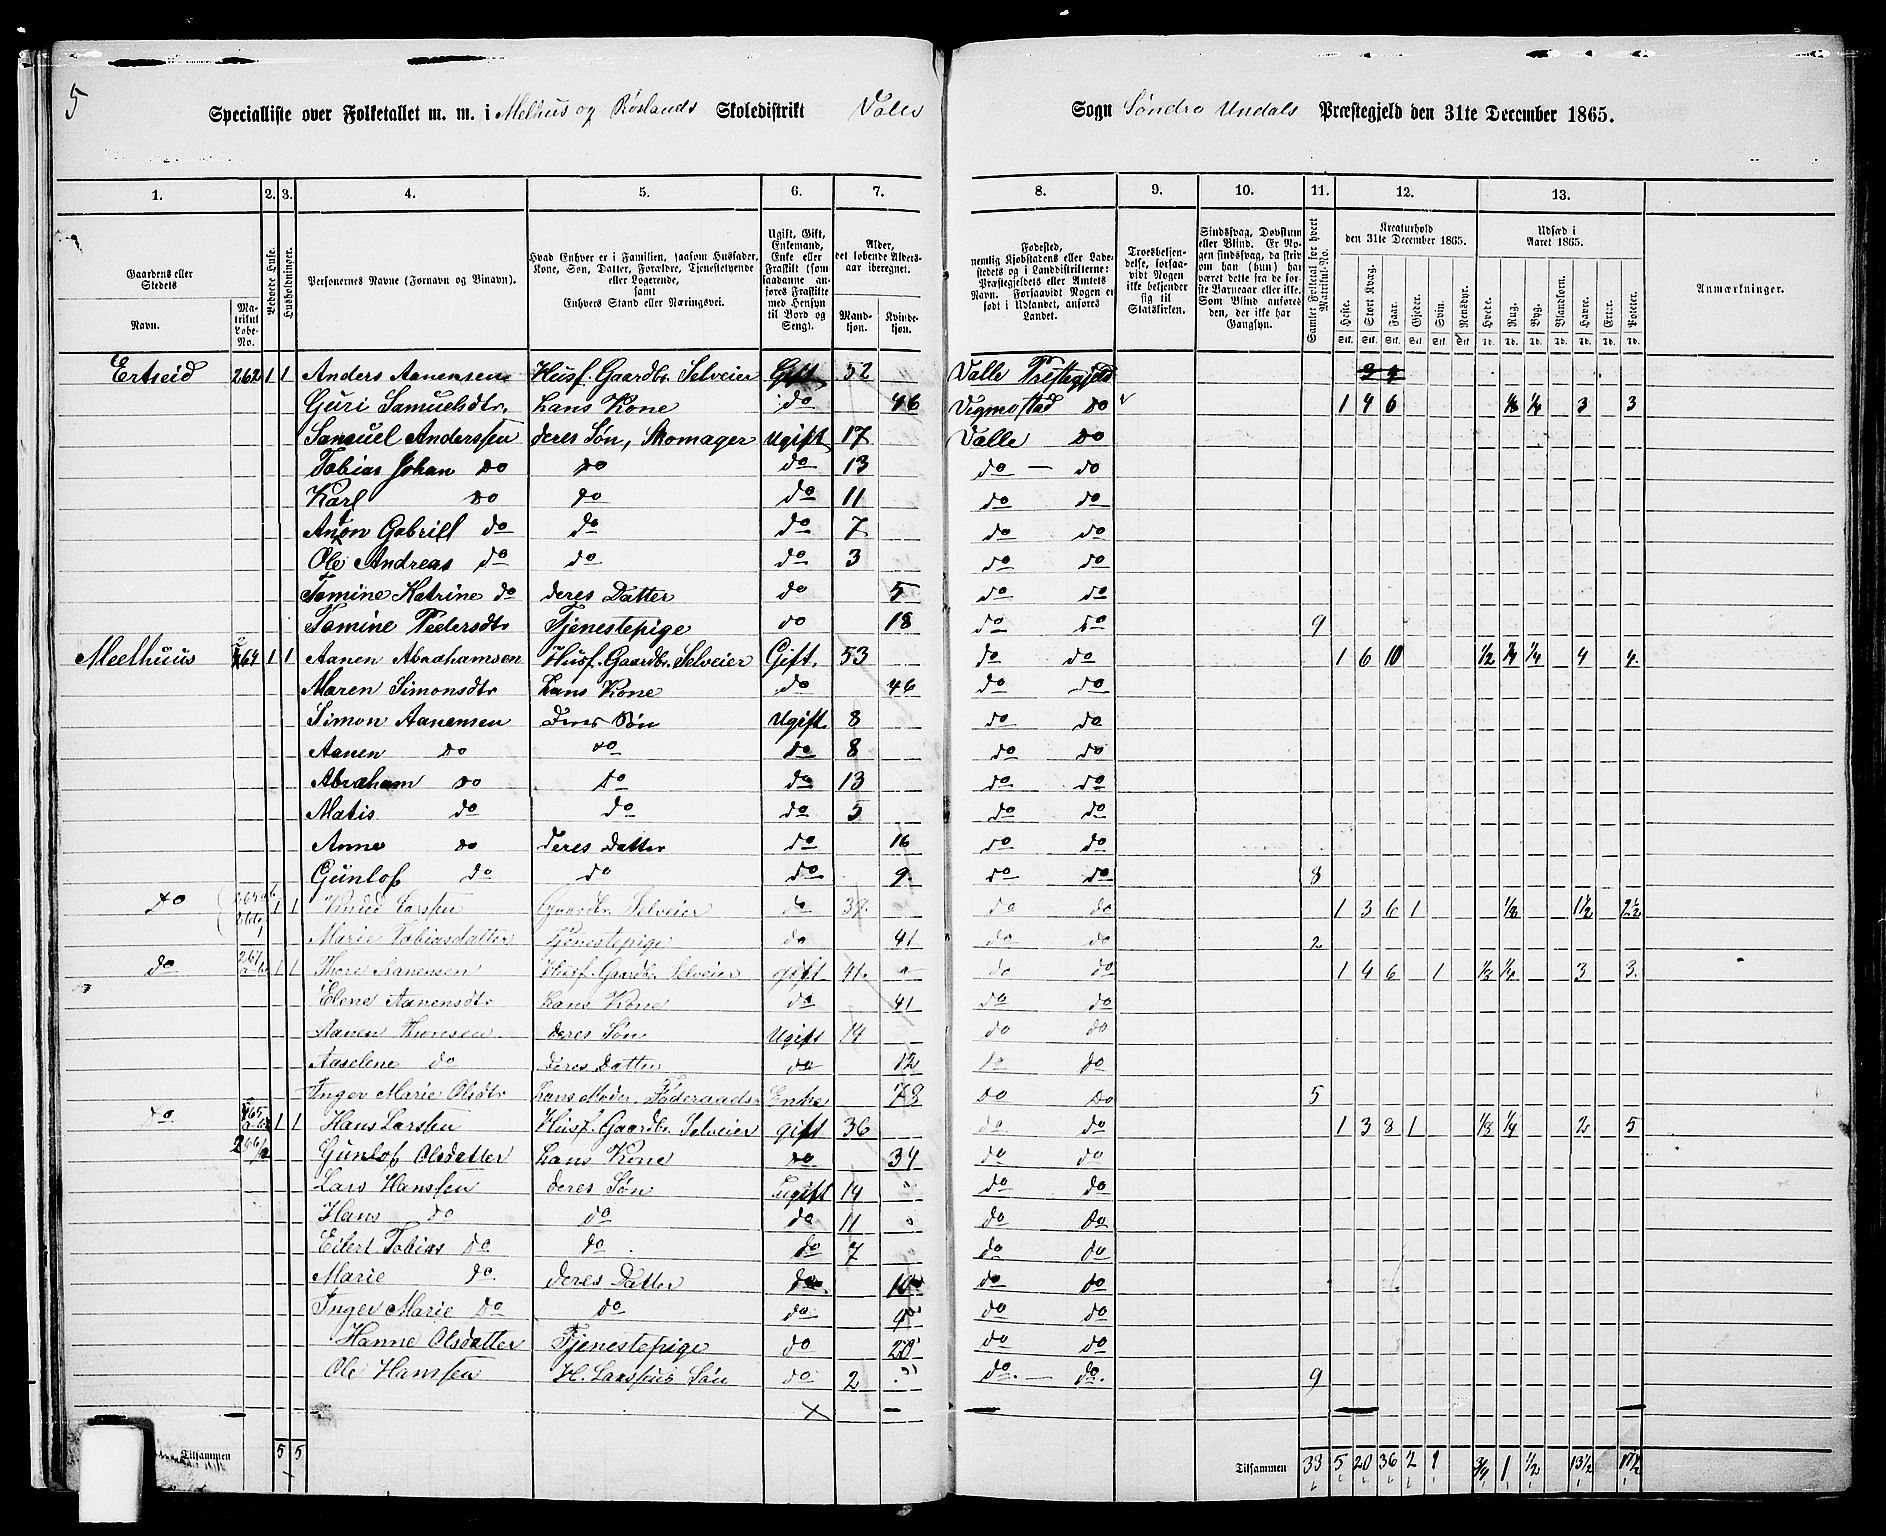 5
Specialliste over Folketallet m. m. i Melhus og Røslands Skoledistrikt Valle Sogn Søndre Undals Præstegjeld den 31te December 1865.
1. 2. 3. 4. 5. 6. 7. 8. 9. 10. 11. 12. 13.
Gaardens eller Stedets Navn. Matrikul Løbe-No. Beboede Huse. Husholdninger. Personernes Navne (Fornavn og Tilnavn). Hvad Enhver er i Familien, saasom Husfader, Kone, Søn, Datter, Forældre, Tjenestetyende eller Logerende, samt Enhvers Stand eller Næringsvei. Ugift, Gift, Enkemand, Enke eller Fraskilt (som saadanne anføres Fraskilte med Hensyn til Bord og Seng). Alder, det løbende Alders-aar iberegnet. Mandkjøn. Kvindekjøn.
Fødested, nemlig Kjøbstadens eller Ladestedets og i Landdistrikterne: Præstegjeldets eller Amtets Navn. Forsaavidt Nogen er født i Udlandet, anføres Landet. Troesbekjendelse, forsaavidt Nogen ikke bekjender sig til Statskirken. Sindssvag, Døvstum eller Blind. Er Nogen sindssvag, da skrives om han (hun) har været dette fra de første Barneaar eller ikke. Som Blind anføres den, der ikke har Gangsyn. Samlet Folketal for hvert Matrikul-No. Kreaturhold den 31te December 1865. Udsæd i Aaret 1865. Anmærkninger.
Heste. Stort Kvæg. Faar. Gjeder. Svin. Rensdyr. Hvede. Rug. Byg. Blandkorn. Havre. Erter. Poteter.
Ertseid 262 1 1 Anders Aanensen Husf. Gaardbr. Selveier Gift 52 Valle Prestegjeld
Guri Samuelsdtr. hans Kone do 46 Vigmostad do 1 4 6 1/8 1/4 3 3
Samuel Anderssen deres Søn, Skomager Ugift 17 Valle do
Tobias Johan do do do 13 do do
Karl do do do 11 do do
Anton Gabriel do do do 7 do do
Ole Andreas do do do 3 do do
Tomine Katrine do deres Datter do 5 do do
Tomine Pedersdtr Tjenestepige do 18 do do 9
Meelhuus 264 1 1 Aanen Abrahamsen Husf. Gaardbr. Selveier Gift. 53 do do 1 6 10 1/2 1/4 4 4
Maren Simonsdtr hans Kone do 46 do do
Simon Aanensen deres Søn Ugift 8 do do
Aanen do do do 8 do do
Abraham do do do 13 do do
Matis do do do 5 do do
Anne do deres Datter do 16 do do
Gunlof do do do 9 do do 8
do 1 1 Knud Larssen Gaardbr. Selveier do do do 1 3 6 1 1/8 1 1/2 2 1/2
Marie Tobiasdatter Tjenestepige do 41 do do 2
do 1 1 Thore Aanensen Husf. Gaardbr. Selveier gift 41 do do 1 4 6 1 1/8 1/4 3 3
Elene Aanensdtr hans Kone do 41 do do
Aanen Thoresen deres Søn Ugift 14 do do
Aaselene do deres Datter do 12 do do
Inger Marie Olsdtr hans Moder, Føderaads- Enke 78 do do 5
do 265 1 1 Hans Larssen Husf. Gaardbr. Selveier gift 36 do do 1 3 8 1 1/8 1/4 2 5
266/2 Gunlof Olsdatter hans Kone do 34 do do
Lars Hanssen deres Søn Ugift 14 do do
Hans do do do 11 do do
Eilert Tobias do do do 7 do do
Marie do deres Datter do 10 do do
Inger Marie do do do do do
Hanne Olsdatter Tjenestepige do 20 do do
Ole Hanssen H. Larssens Søn do 2 do do 9
Tilsammen 5 5 Tilsammen 33 5 20 36 2 1 3/4 1 1/2 13 1/2 17 1/2